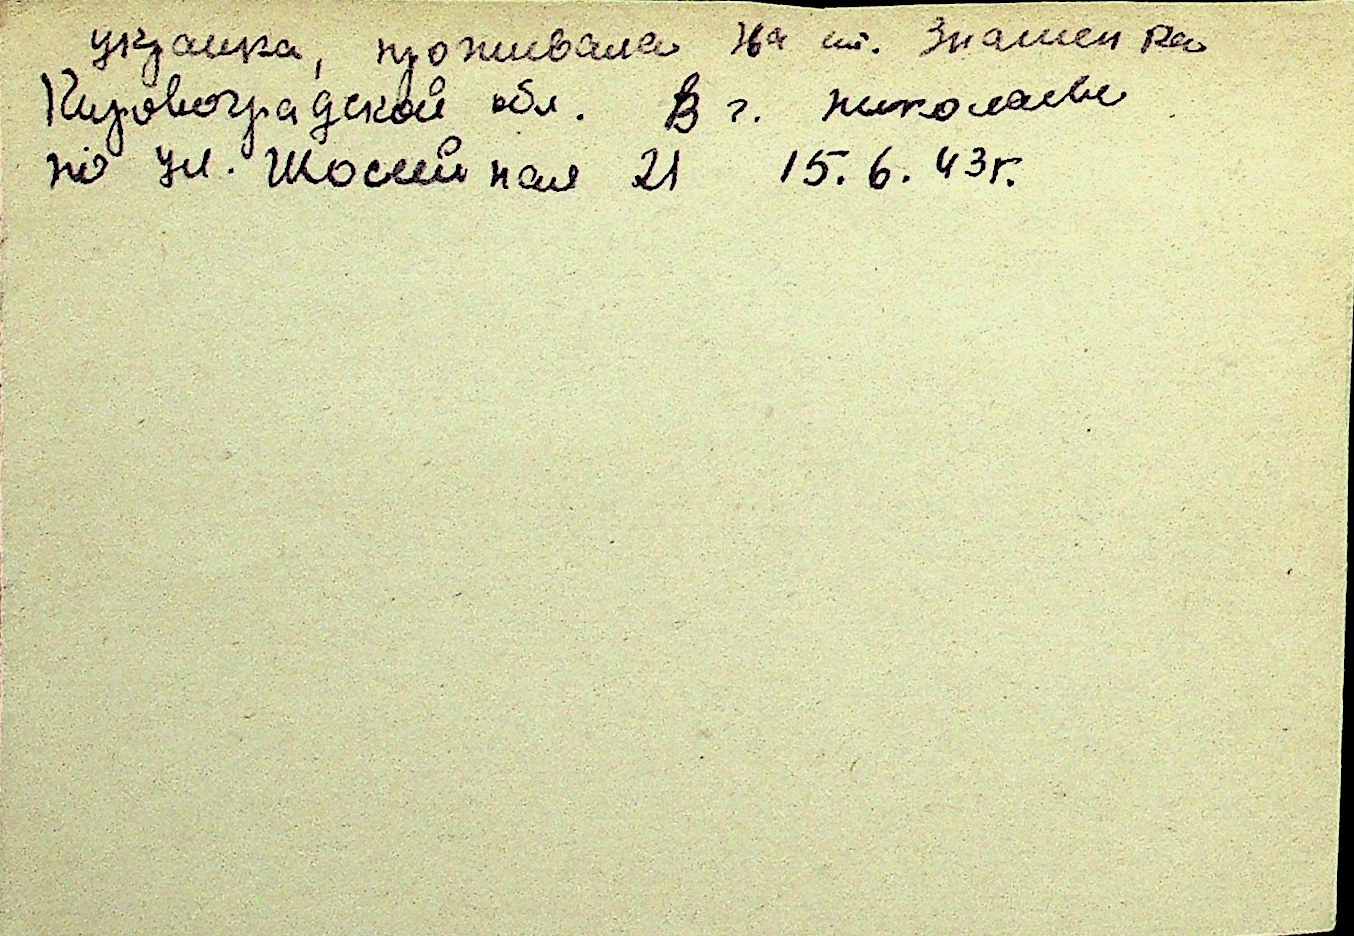 украинка, проживала на ст. Знаменка
Кировоградской обл. В г. Николаеве
по ул. Шоссейная 21 15.6.43г.